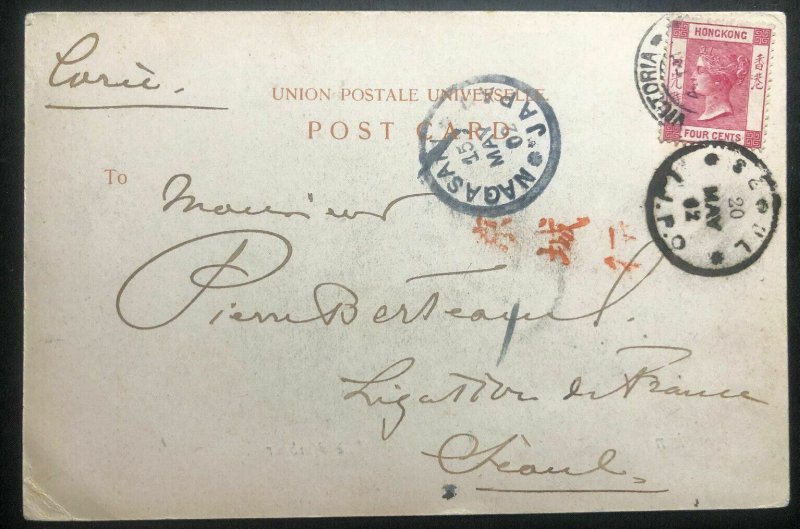 Corée.
HONGKONG
香港
FOUR CENTS
VICTORIA
UNION POSTALE UNIVERSELLE
POST CARD
NAGASAKI
JAPAN
15
MAY
02
To
Monsieur
京城行
SEOUL
20
MAY
02
I.J.P.O
Pierre Berteaux
Légation de France
Séoul